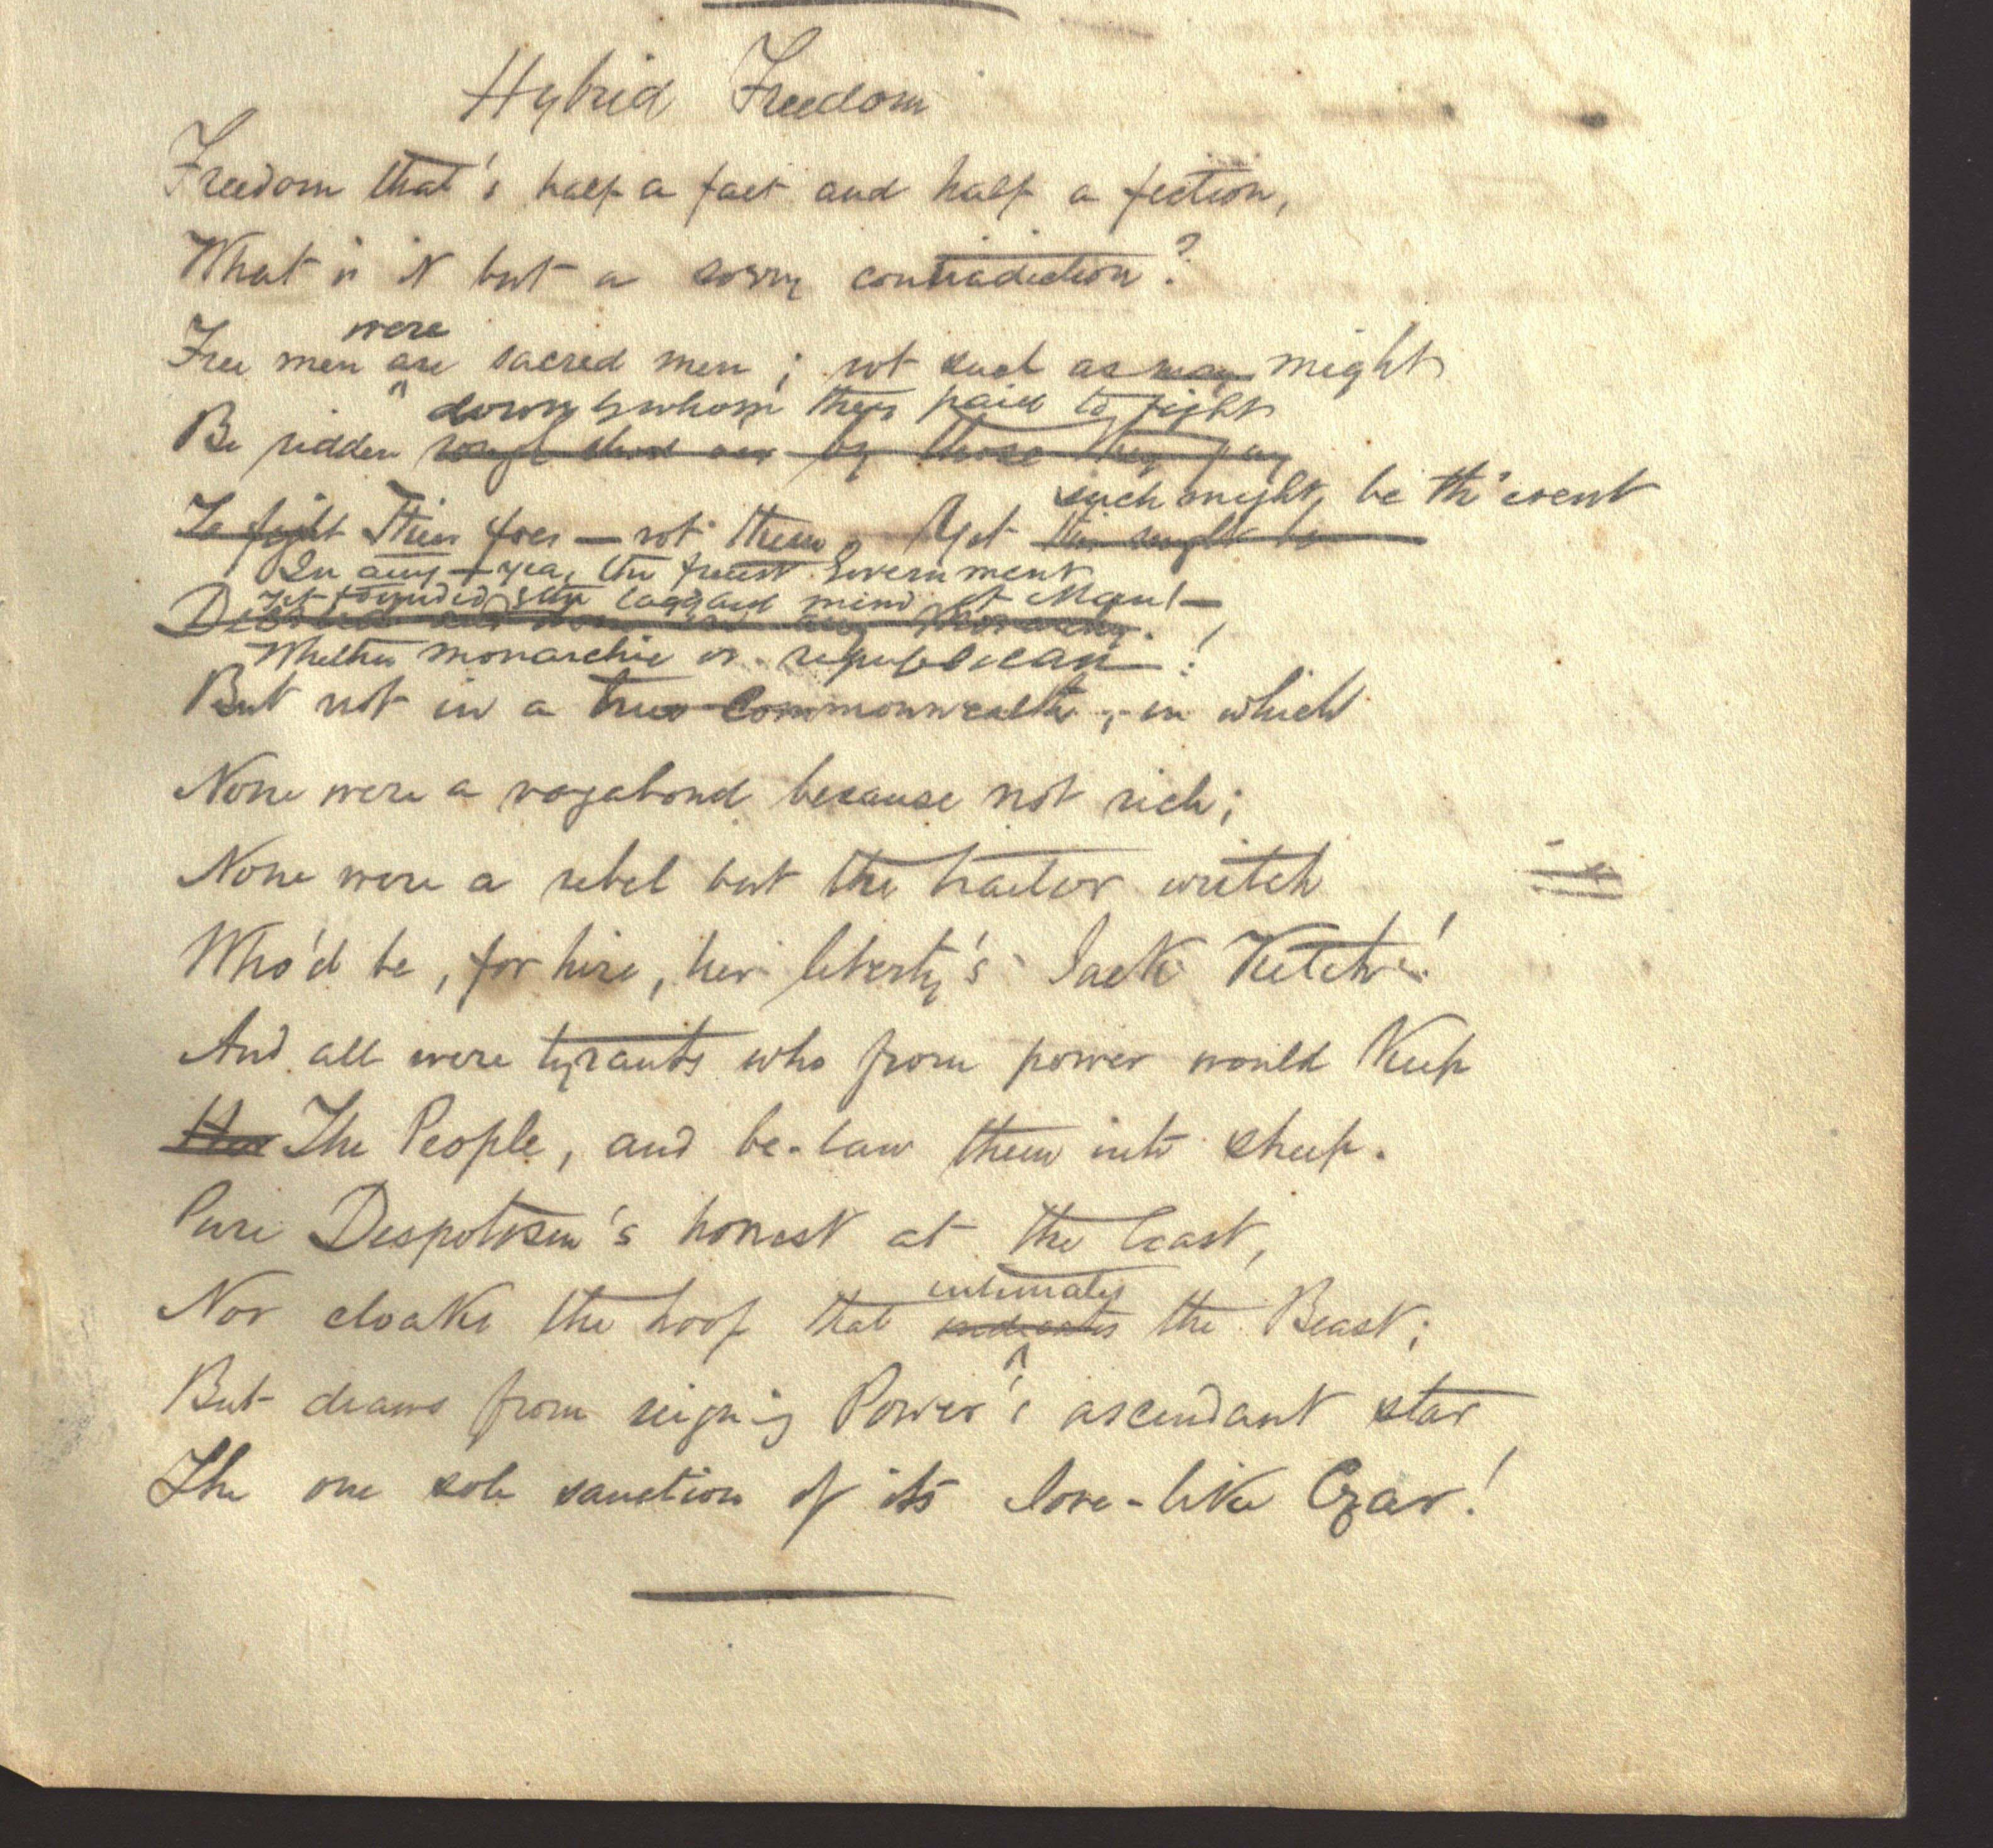 Hybrid Freedom
Freedom that's half a fact and half a fiction,
What is it but a sorry contradiction?
were
Free men are sacred men; not such as may might
down by whom they paid to fight
Be ridden rough shod over by those they pay
such might be th' event
To fight Their foes — not them. Yet this might be
In any — yea, the freest Government
Yet founded, laggard mind of Man! —
any Monarchy.
Whether monarchic or republican!
But not in a true Commonwealth, in which
None were a vagabond because not rich;
None were a rebel but the traitor wretch
Who'd be, for hire, her liberty's Jack Ketch!
And all were tyrants who from power would keep
The People, and be-law them into sheep.
Pure Despotism's honest at the least,
intimates
Nor cloaks the hoof that indicates the Beast;
But draws from reigning Power's ascendant star
The one sole sanction of its Jove-like Czar!